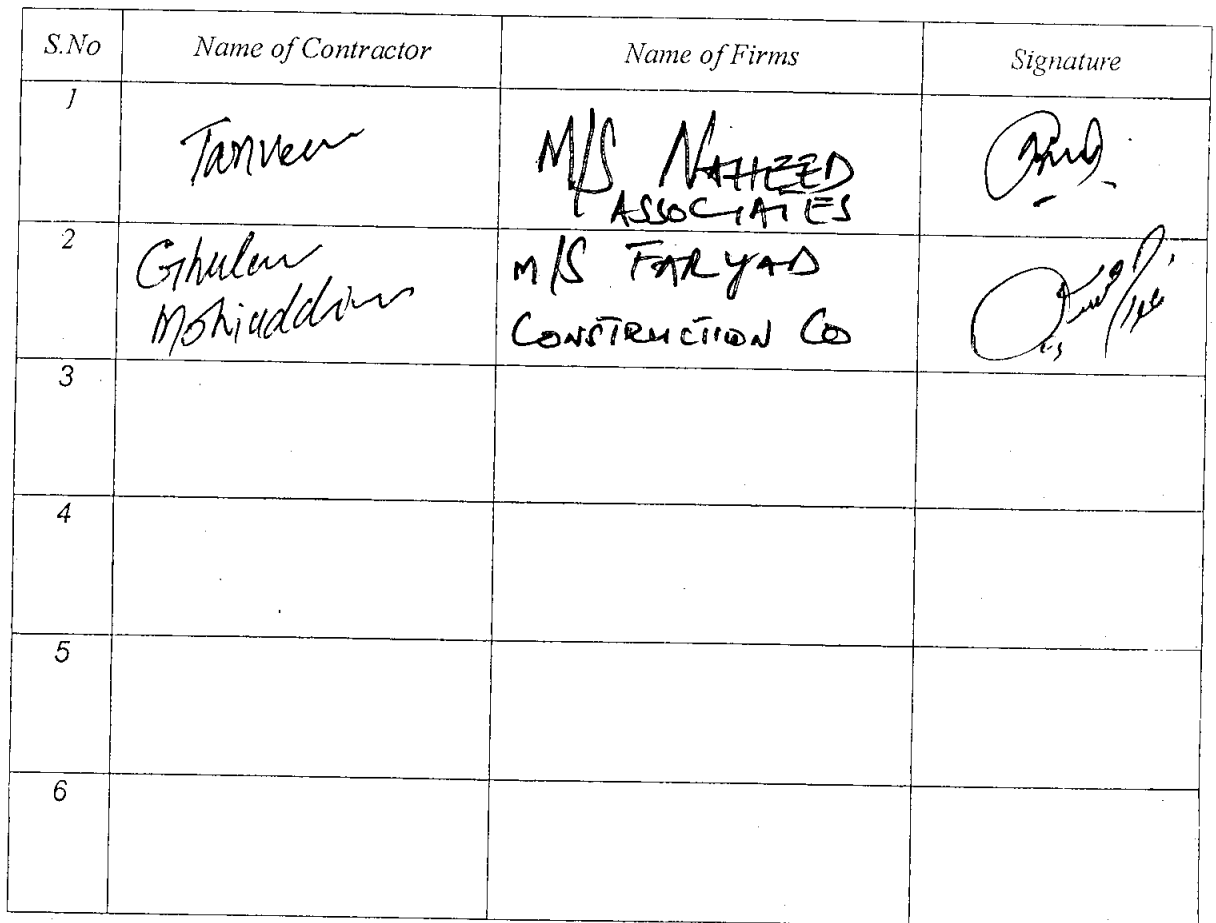 S.No Name of Contractor Name of Firms Signature
1
Tanveer M/S NAHEED
ASSOCIATES
2
Ghulam M/S FARYAD
Mohiuddin CONSTRUCTION CO
3
4
5
6